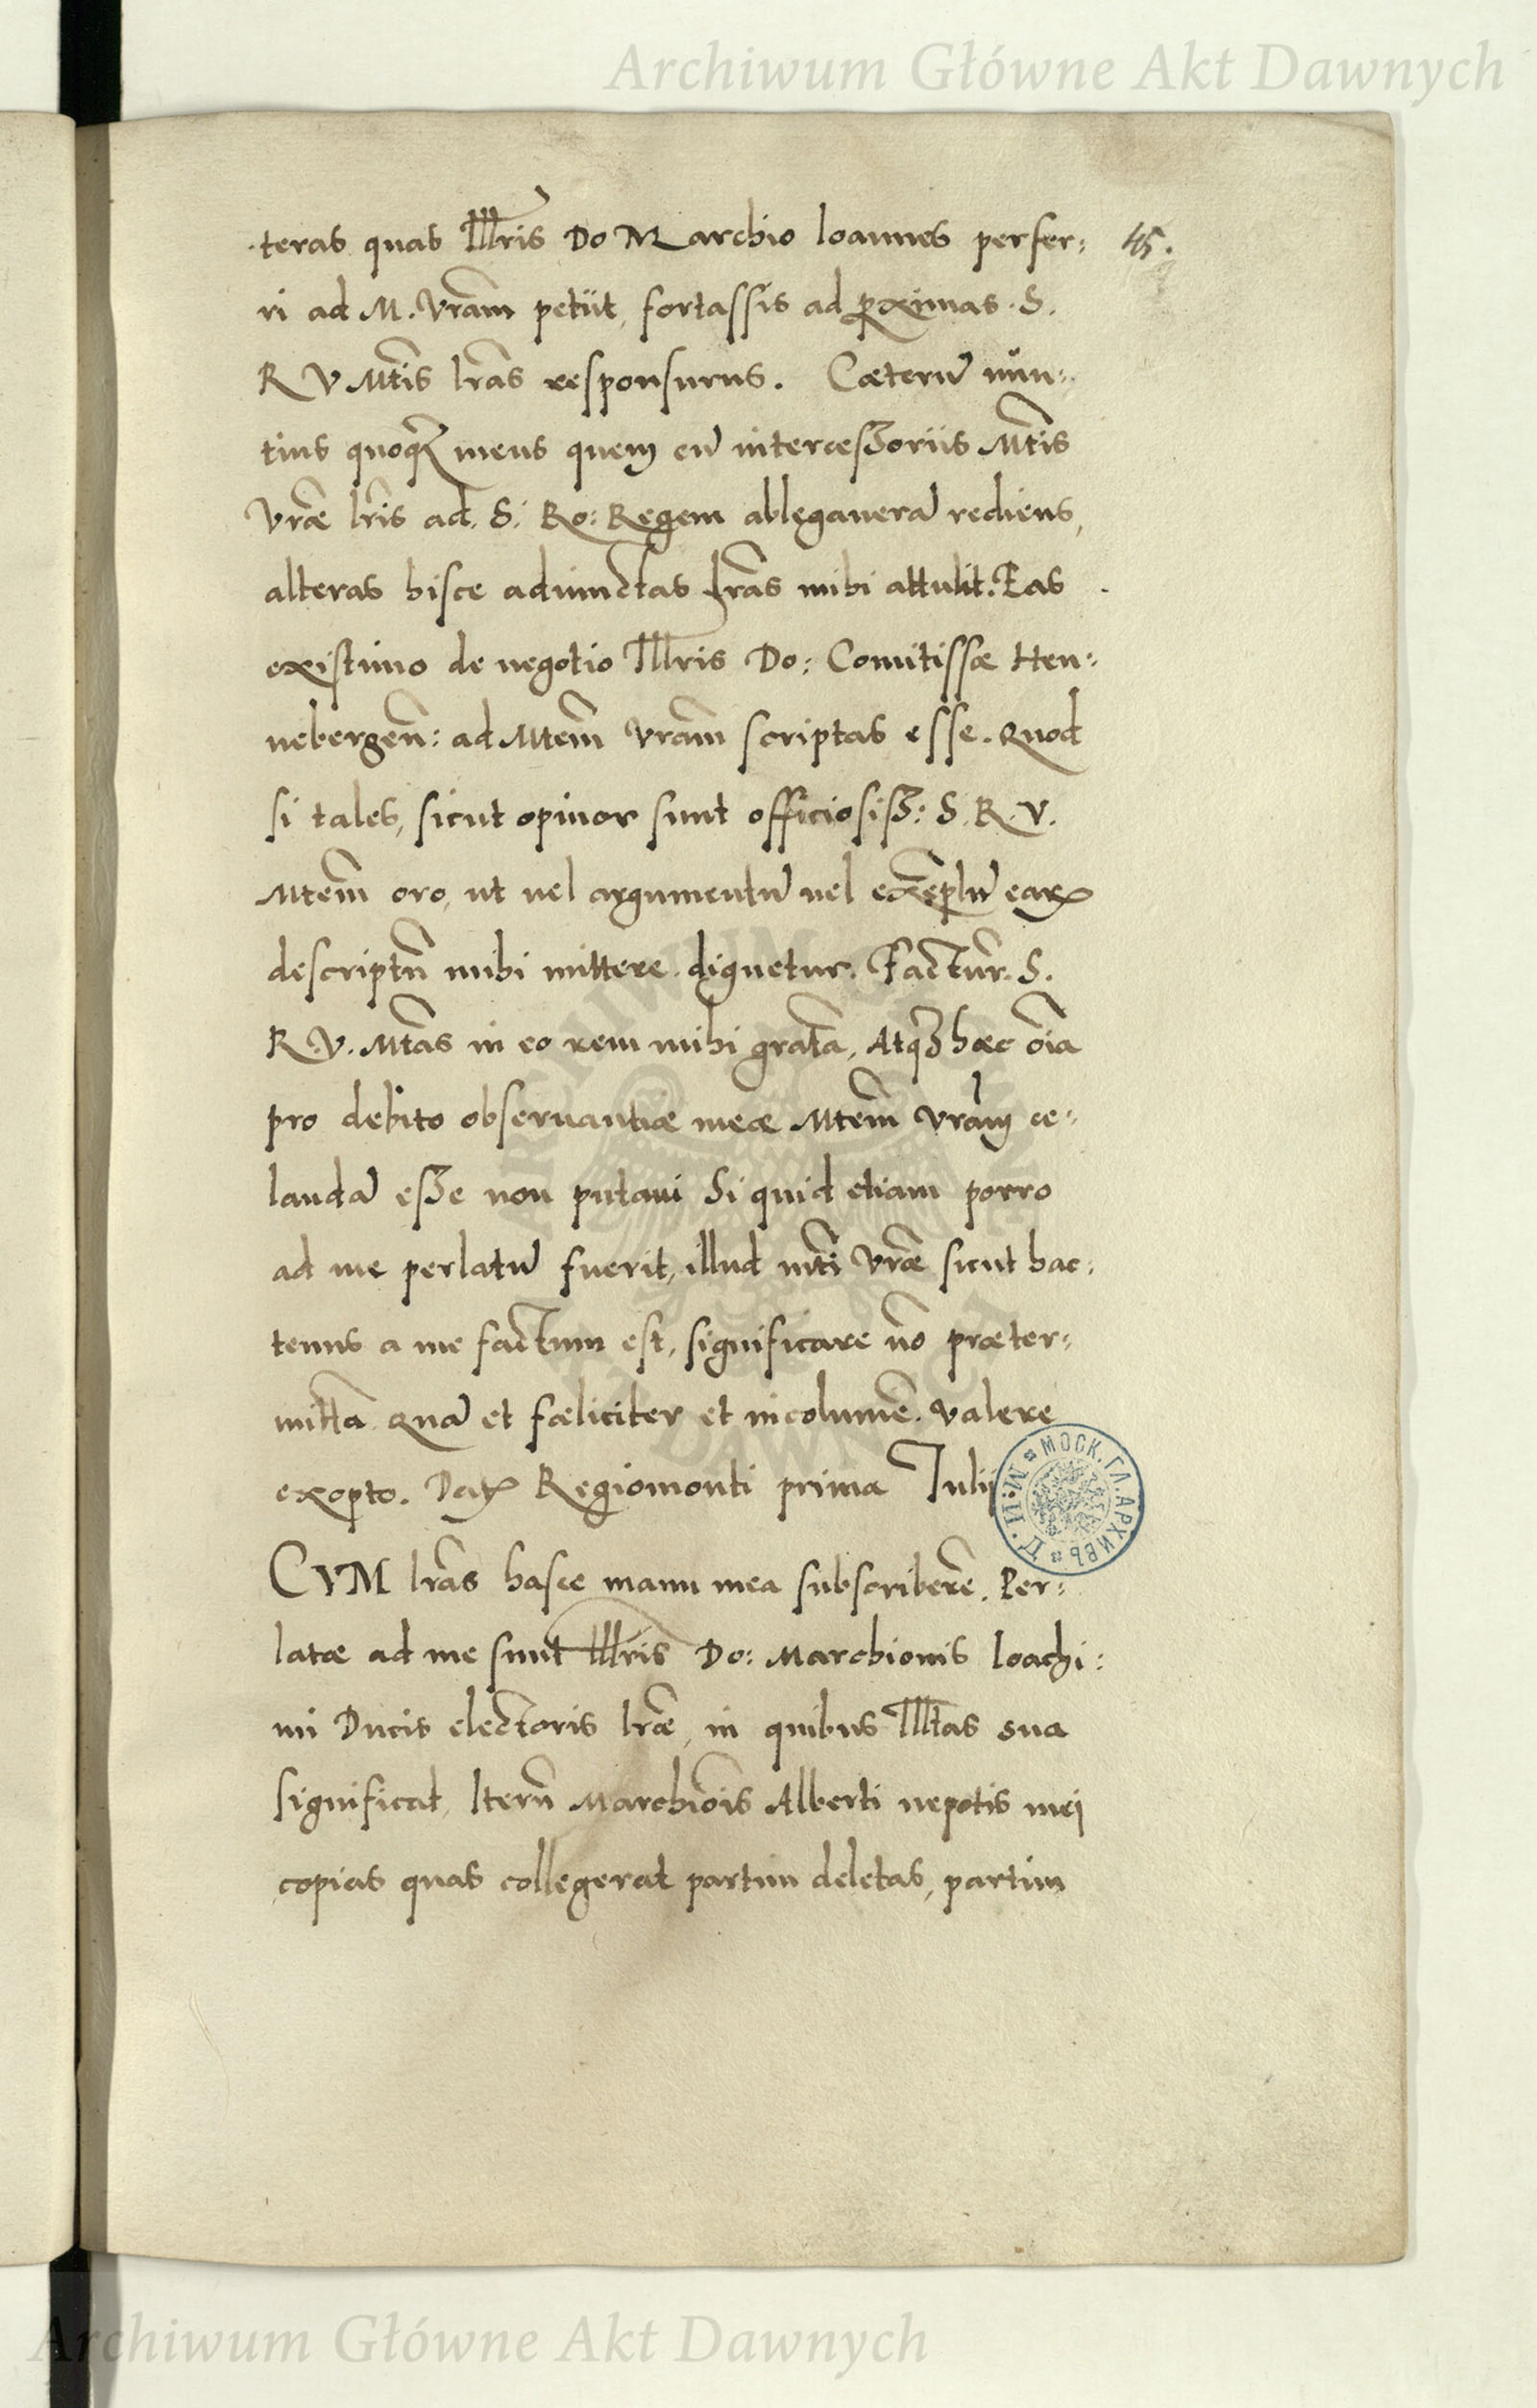 Archiwum Główne Akt Dawnych
teras quas Illris Do Marchio Ioannes perfer: 45.
ri ad M. Vram petiit, fortassis ad pximas S.
R V Mtis lras responsurus. Cæterũ nun:
tius quoqȝ meus quem cũ intercessoriis Mtis
Vræ lris ad. S. Ro: Regem ablegauerã rediens,
alteras hisce adiunctas lras mihi attulit. Eas
existimo de negotio Illris Do: Comitissæ Hen:
nebergeñ: ad Mtem Vram scriptas esse. Quod
si tales, sicut opinor sunt officiosiss: S. R. V.
Mtem oro, ut uel argumentũ uel exẽplũ earꝝ
descriptũ mihi mittere dignetur. Factur. S.
R. V. Mtas in eo rem mihi gratã, Atqȝ hæc oĩa
pro debito obseruantiæ meæ Mtem Vram ce:
landã esse non putaui Si quid etiam porro
ad me perlatũ fuerit, illud mti Vræ sicut hac:
tenus a me factum est, significare nõ præter:
mittã. Quã et fæliciter et incolumẽ. Valere
exopto. Datꝝ Regiomonti prima Iulij
CVM lras hasce manu mea subscriberẽ. Per:
latæ ad me sunt Illris Do: Marchionis Ioachi:
mi Ducis electoris lræ, in quibus Illtas sua
significat, Iterũ Marchiõis Alberti nepotis mei
copias quas collegerat partim deletas, partim
МОСК. ГЛ. АРХИВЪ М. И. Д.
Archiwum Główne Akt Dawnych